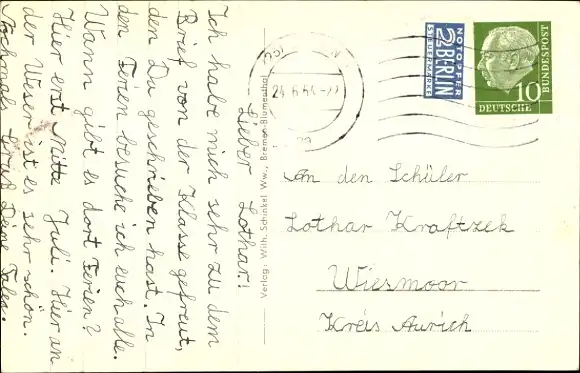 Lieber Lothar!
Ich habe mich sehr zu dem
Brief von der Klasse gefreut,
den Du geschrieben hast. In
den Ferien besuche ich euch alle.
Wann gibt es dort Ferien?
Hier erst Mitte Juli. Hier an
der Weser ist es sehr schön.
Nochmals Gruß Deine
Verlag: Wilh. Schinkel Ww., Bremen-Blumenthal
24.6.54
NOTOPFER
2 BERLIN
STEUERMARKE
DEUTSCHE
BUNDESPOST
10
An den Schüler
Lothar Kraftzek
Wiesmoor
Kreis Aurich